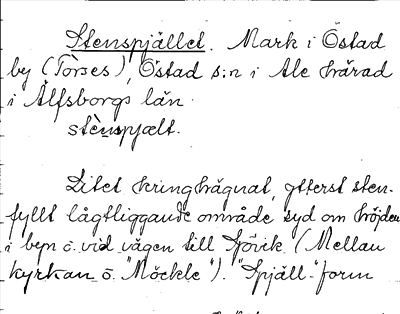 Stenspjället. Mark i Östad
by (Torses), Östad s:n i Ale härad
i Älfsborgs län.
stènspjælt.
Litet kringhägnat, ytterst sten-
fyllt lågtliggande område syd om höjden
i byn o. vid vägen till Sjövik (Mellan
kyrkan o. "Möckle"). "Spjäll"-form